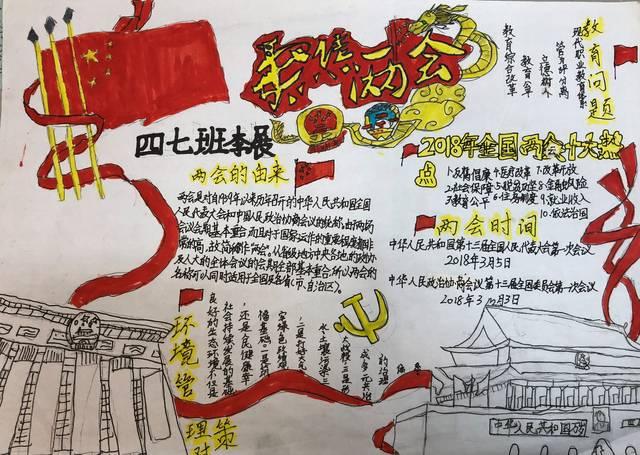 聚焦两会
四七班李展
两会的由来
两会是对自1959年以来历年召开的中华人民共和国全国
人民代表大会和中国人民政治协商会议的统称。由于两场
会议会期基本重合，而且对于国家运作的重要程度都非
常的高，故简称作"两会"。从省级地方到中央，各地的政协
及人大的全体会议的会期全部基本重合，所以两会的
名称可以同时适用于全国及各省(市、自治区)。
教育问题
现代职业教育体系
管办评分离
立德树人
教育公平
教育综合改革
2018年全国两会十大热
点
1.反腐倡廉 4.医疗改革 7.改革开放
2.社会保障 5.脱贫攻坚 8.金融风险
3.教育公平 6.住房制度 9.就业收入
10.依法治国
两会时间
中华人民共和国第十三届全国人民代表大会第一次会议
2018年3月5日
中华人民政治协商会议第十三届全国委员会第一次会议
2018年3月3日
环境管
理对策
良好的生态环境不但是
社会持续发展的基础
还是人民健康
水土壤污染三
中华人民共和国万